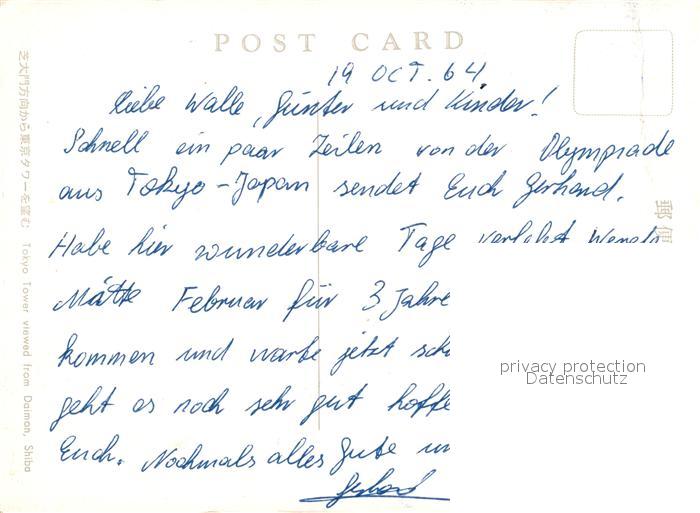 POST CARD
19 OCT. 64
Liebe Walle, Günter und Kinder!
Schnell ein paar Zeilen von der Olympiade
aus Tokyo-Japan sendet Euch Gerhard.
Habe hier wunderbare Tage verlebt
Februar für 3 Jahre
kommen und warte jetzt
geht es noch sehr gut hoffe
Euch. Nochmals alles Gute
Gerhard
privacy protection
Datenschutz
芝大門方向から東京タワーを望む Tokyo Tower viewed from Daimon, Shiba
郵便